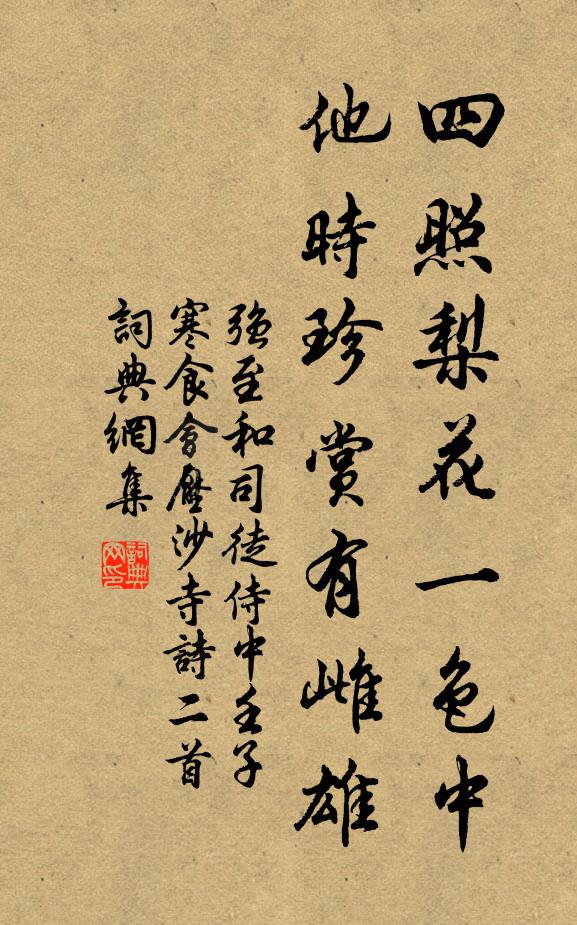 四照梨花一色中
他時珍賞有雌雄
强至和司徒侍中壬子
寒食會壓沙寺詩二首
詞典網集
詞典网印